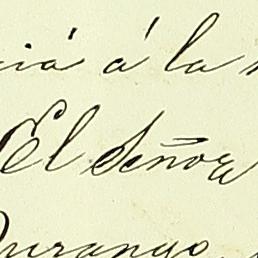 ciá á la
El Señor
Durango,